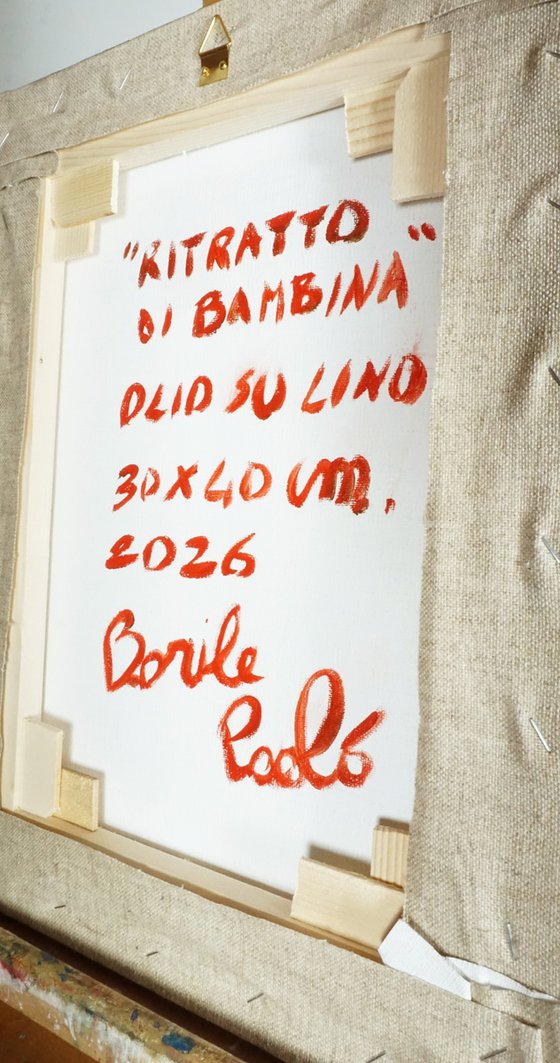 "RITRATTO "
DI BAMBINA
OLIO SU LINO
30X40 cm.
2026
Borile
Paolo